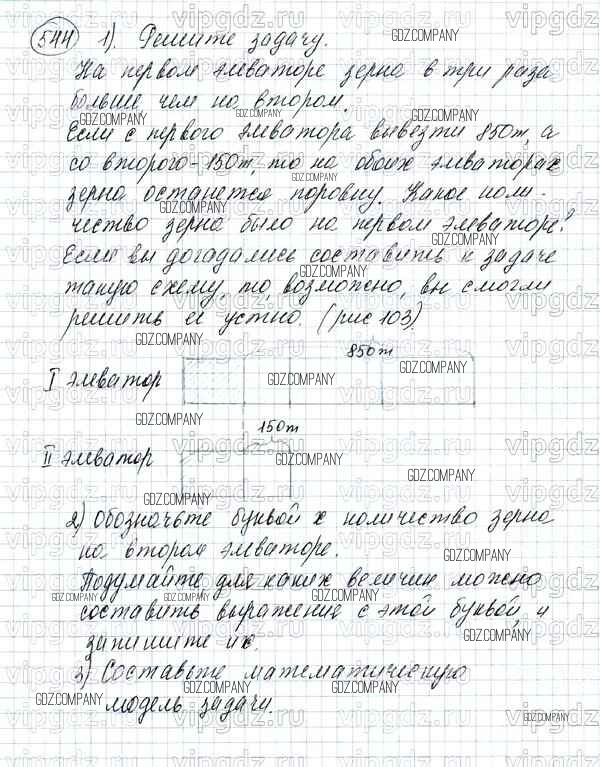 544 1). Решите задачу.
На первом элеваторе зерна в три раза
больше чем на втором.
Если с первого элеватора вывезти 850т, а
со второго - 150т, то на обоих элеваторах
зерна останется поровну. Какое коли-
чество зерна было на первом элеваторе?
Если вы догадались составить к задаче
такую схему, то, возможно, вы смогли
решить её устно. (рис 103)
850т
I элеватор
150т
II элеватор
2) Обозначьте буквой x количество зерна
на втором элеваторе.
Подумайте для каких величин можно
составить выражение с этой буквой, и
запишите их.
3) Составьте математическую
модель задачи.
vipgdz.ru
GDZ.COMPANY